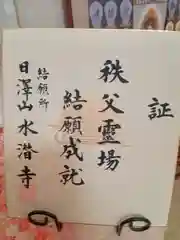 証
秩父霊場
結願成就
結願所
日澤山水潜寺